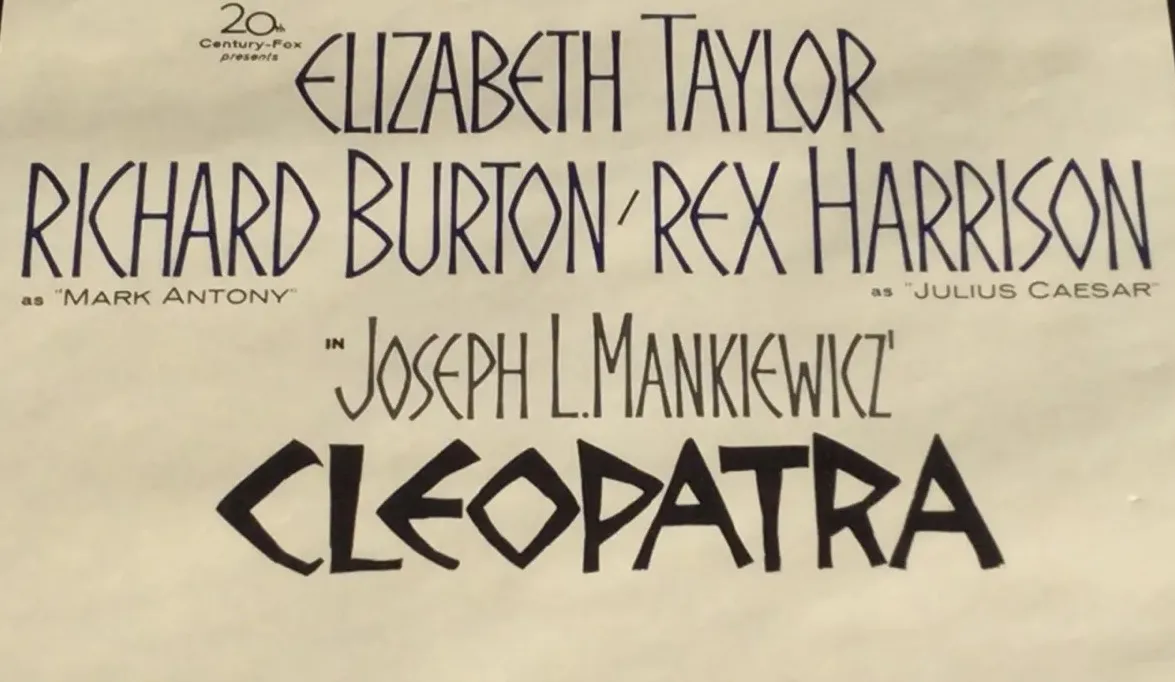 20th
Century-Fox
presents
ELIZABETH TAYLOR
RICHARD BURTON / REX HARRISON
as "MARK ANTONY" as "JULIUS CAESAR"
IN JOSEPH L. MANKIEWICZ'
CLEOPATRA